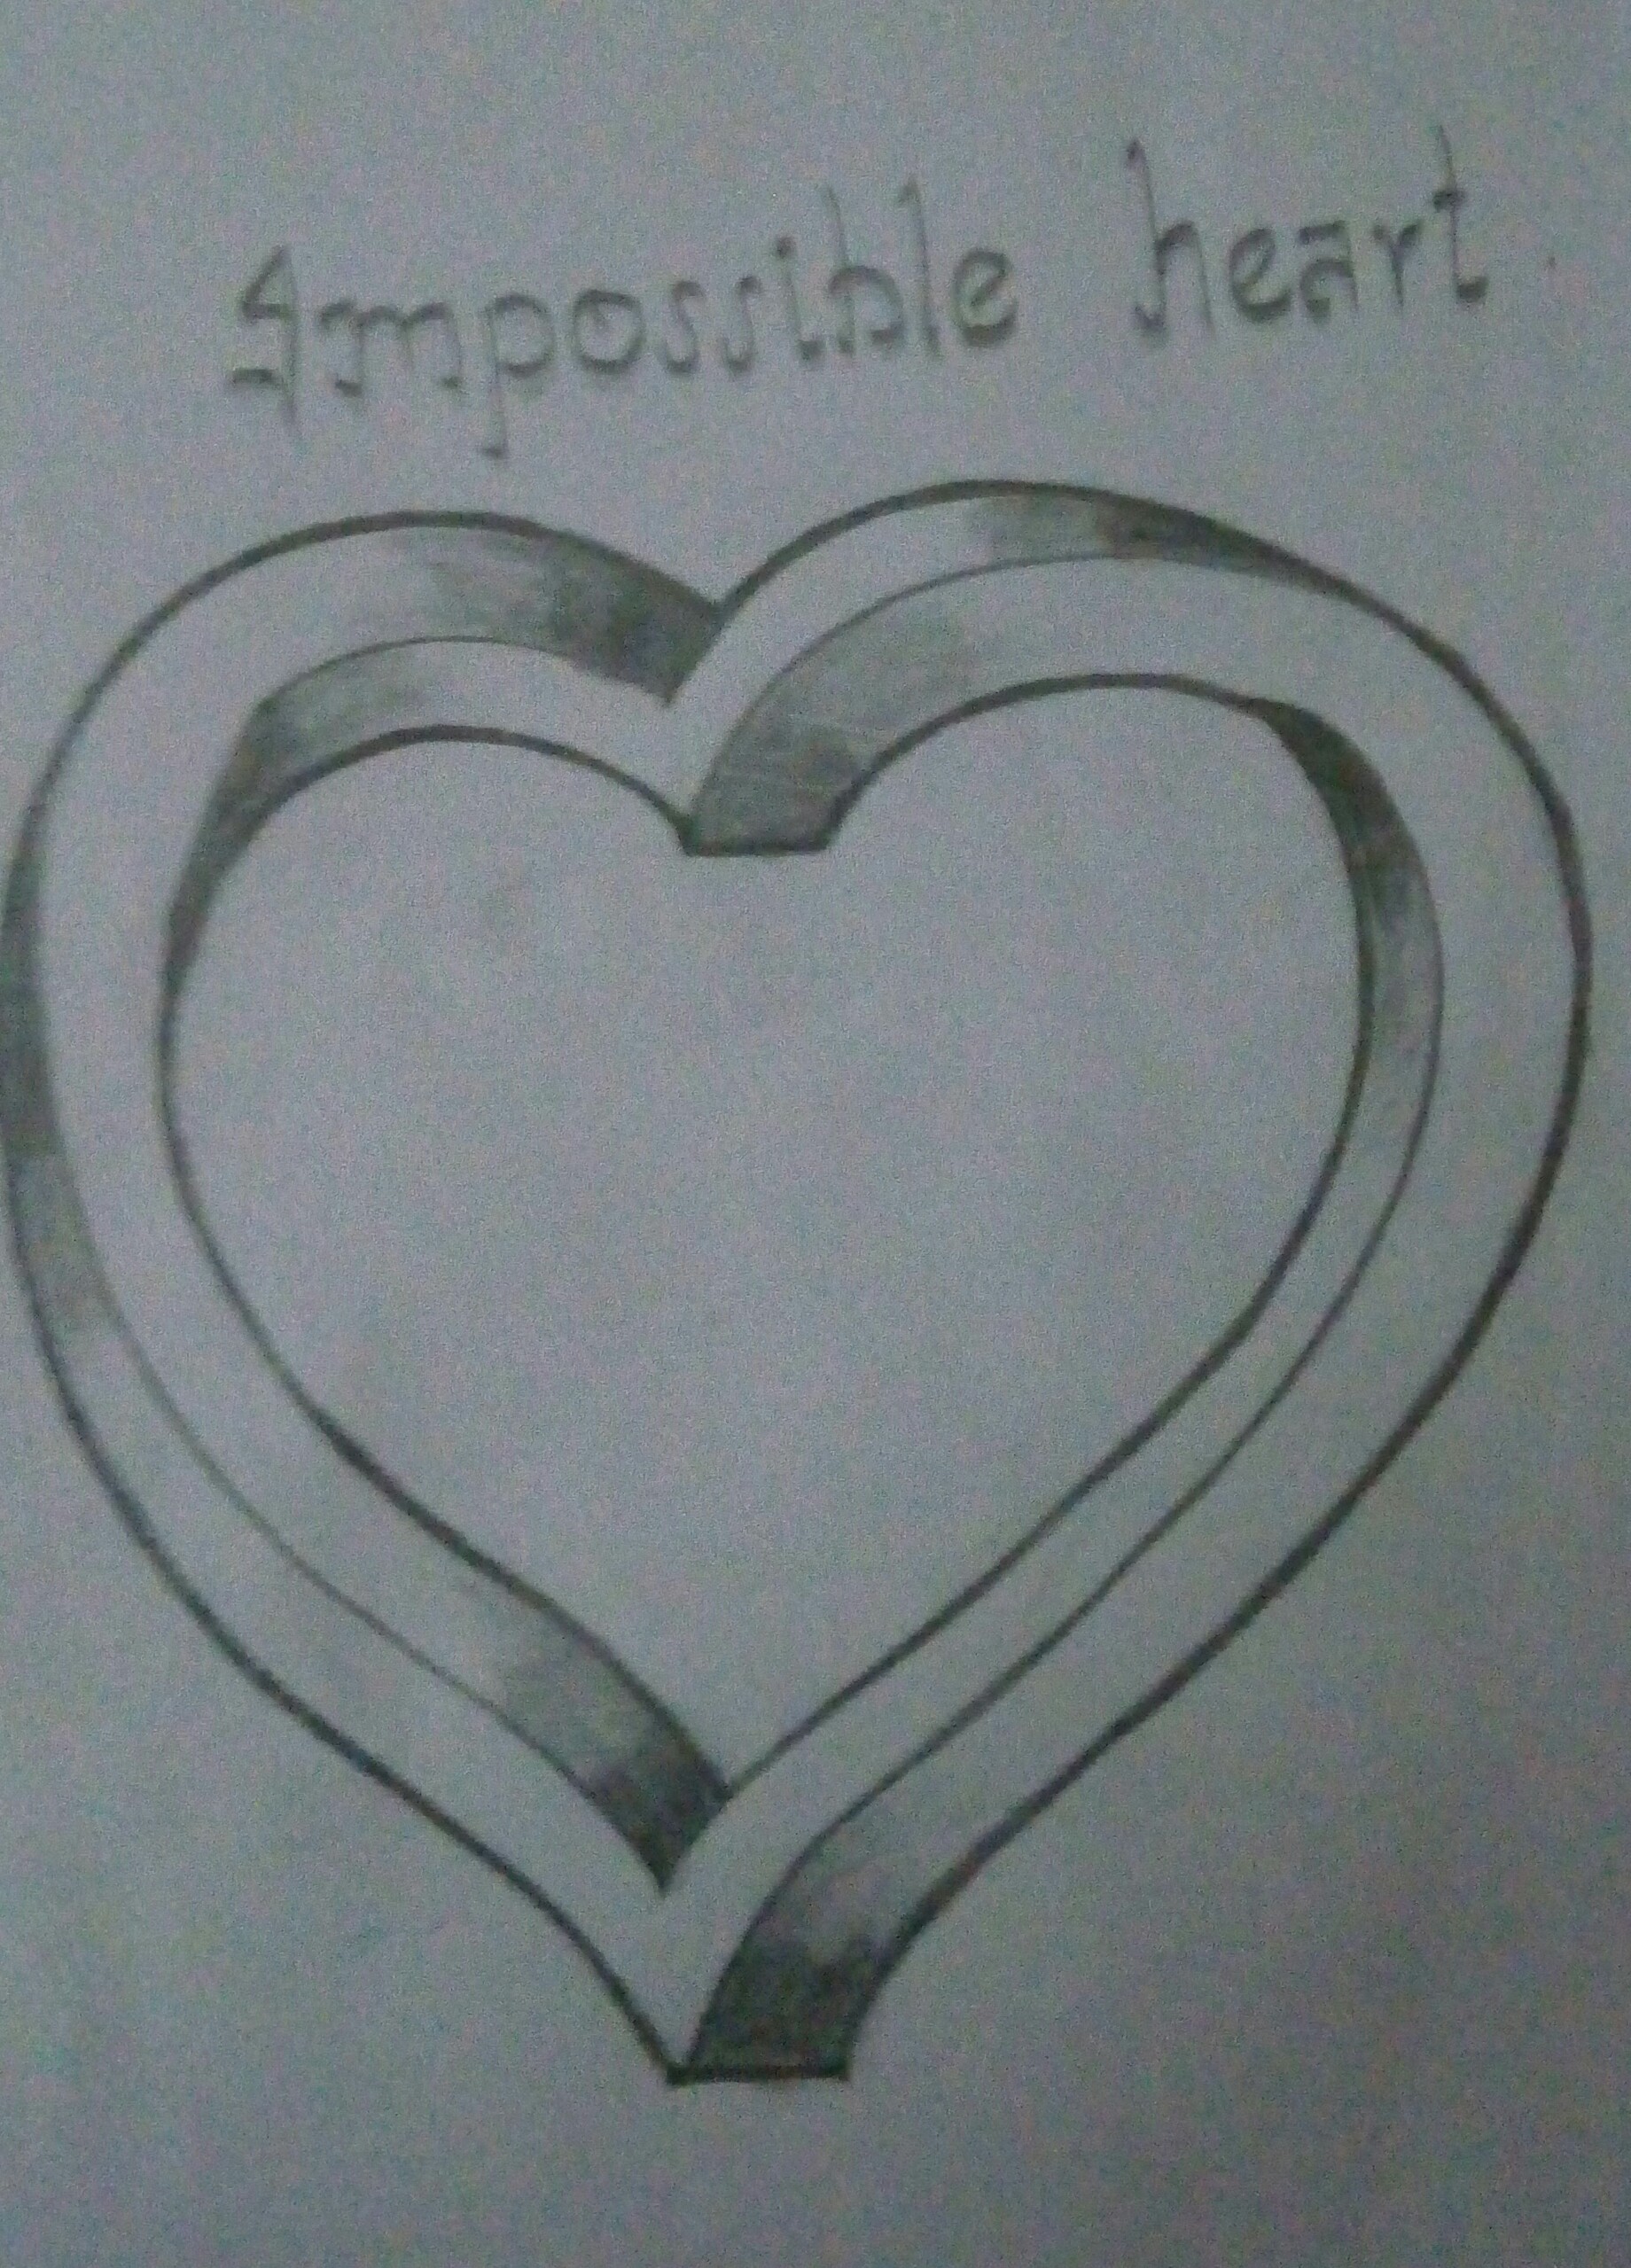 Impossible heart.